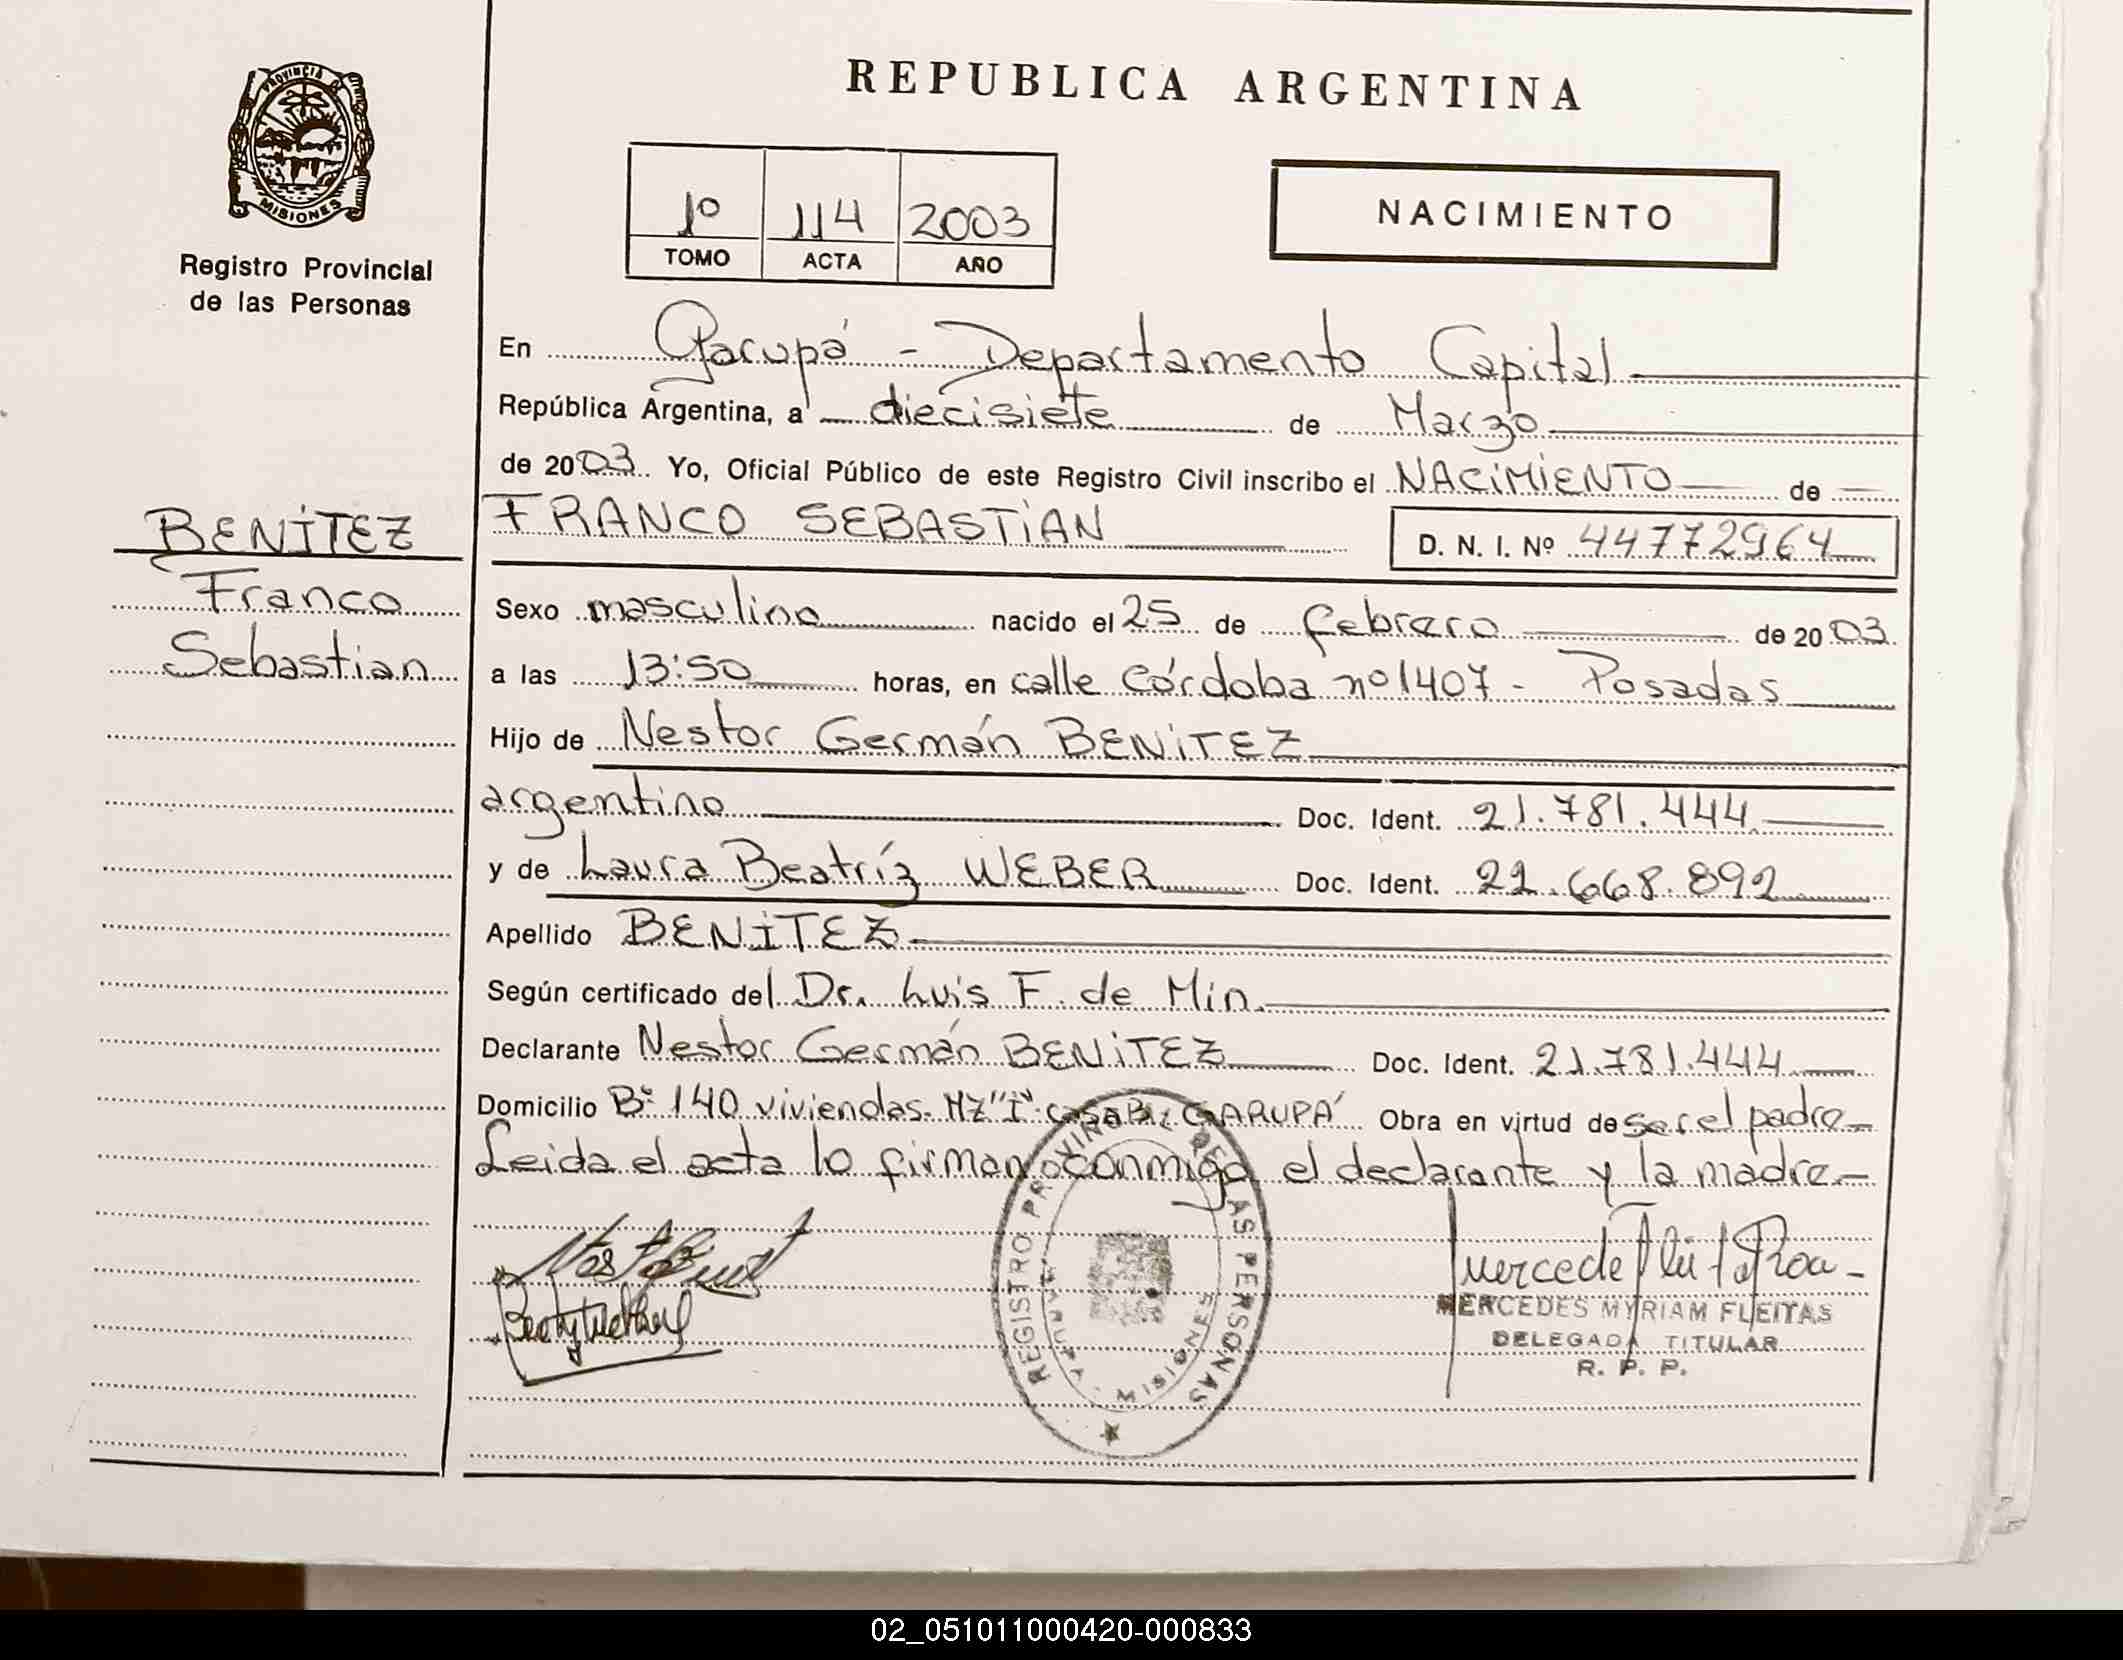 PROVINCIA DE
MISIONES
Registro Provincial
de las Personas
BENITEZ
Franco
Sebastian
REPUBLICA ARGENTINA
1º 114 2003
TOMO ACTA AÑO
NACIMIENTO
En Garupá - Departamento Capital
República Argentina, a diecisiete de Marzo
de 2003 Yo, Oficial Público de este Registro Civil inscribo el NACIMIENTO de
FRANCO SEBASTIAN D. N. I. Nº 44772964
Sexo masculino nacido el 25 de febrero de 2003
a las 13:50 horas, en calle Córdoba nº 1407 - Posadas
Hijo de Nestor Germán BENITEZ
argentino Doc. Ident. 21.781.444
y de Laura Beatríz WEBER Doc. Ident. 22.668.892
Apellido BENITEZ
Según certificado del Dr. Luis F. de Min.
Declarante Nestor Germán BENITEZ Doc. Ident. 21.781.444
Domicilio Bº 140 viviendas. MZ "I" casa GARUPÁ Obra en virtud de ser el padre
Leida el acta lo firman conmigo el declarante y la madre.
REGISTRO PROVINCIAL DE LAS PERSONAS
MISIONES
MERCEDES MYRIAM FLEITAS
DELEGADA TITULAR
R. P. P.
02_051011000420-000833